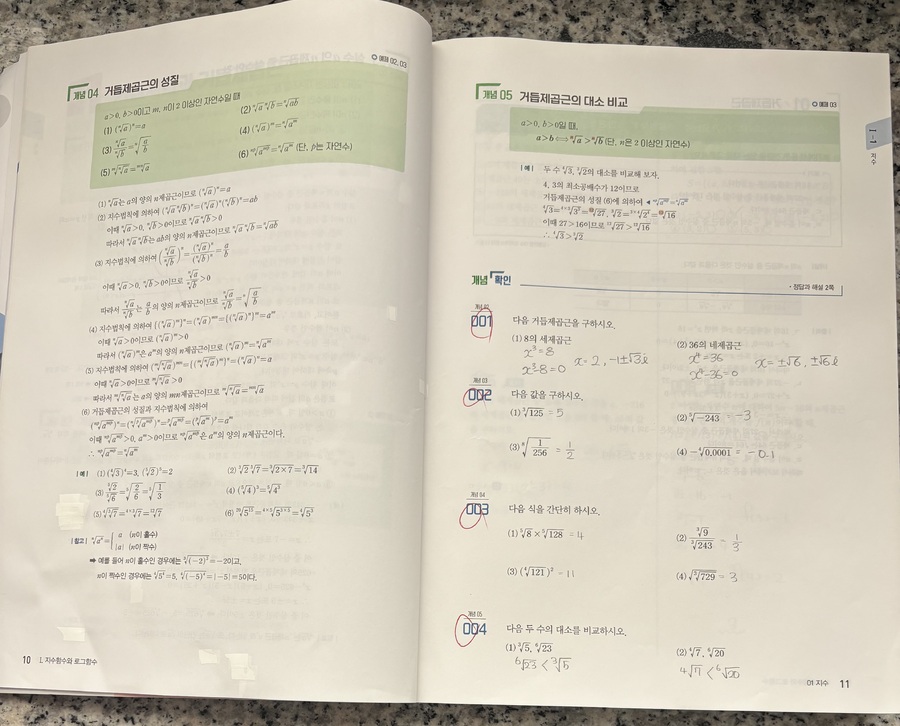 개념 04 거듭제곱근의 성질
◎ 예제 02, 03
a>0, b>0이고 m, n이 2 이상인 자연수일 때
(1) (ⁿ√a)ⁿ=a
(2) ⁿ√a ⁿ√b=ⁿ√ab
(3) ⁿ√a/ⁿ√b=ⁿ√(a/b)
(4) (ⁿ√a)ᵐ=ⁿ√aᵐ
(5) ᵐ√ⁿ√a=ᵐⁿ√a
(6) ⁿᵖ√aᵐᵖ=ⁿ√aᵐ (단, p는 자연수)
(1) ⁿ√a는 a의 양의 n제곱근이므로 (ⁿ√a)ⁿ=a
(2) 지수법칙에 의하여 (ⁿ√a ⁿ√b)ⁿ=(ⁿ√a)ⁿ(ⁿ√b)ⁿ=ab
이때 ⁿ√a>0, ⁿ√b>0이므로 ⁿ√a ⁿ√b>0
따라서 ⁿ√a ⁿ√b는 ab의 양의 n제곱근이므로 ⁿ√a ⁿ√b=ⁿ√ab
(3) 지수법칙에 의하여 (ⁿ√a/ⁿ√b)ⁿ=(ⁿ√a)ⁿ/(ⁿ√b)ⁿ=a/b
이때 ⁿ√a>0, ⁿ√b>0이므로 ⁿ√a/ⁿ√b>0
따라서 ⁿ√a/ⁿ√b는 a/b의 양의 n제곱근이므로 ⁿ√a/ⁿ√b=ⁿ√(a/b)
(4) 지수법칙에 의하여 {(ⁿ√a)ᵐ}ⁿ=(ⁿ√a)ᵐⁿ={(ⁿ√a)ⁿ}ᵐ=aᵐ
이때 ⁿ√a>0이므로 (ⁿ√a)ᵐ>0
따라서 (ⁿ√a)ᵐ은 aᵐ의 양의 n제곱근이므로 (ⁿ√a)ᵐ=ⁿ√aᵐ
(5) 지수법칙에 의하여 (ᵐ√ⁿ√a)ᵐⁿ={(ᵐ√ⁿ√a)ᵐ}ⁿ=(ⁿ√a)ⁿ=a
이때 ⁿ√a>0이므로 ᵐ√ⁿ√a>0
따라서 ᵐ√ⁿ√a는 a의 양의 mn제곱근이므로 ᵐ√ⁿ√a=ᵐⁿ√a
(6) 거듭제곱근의 성질과 지수법칙에 의하여
이때 ⁿᵖ√aᵐᵖ>0, aᵐ>0이므로 ⁿᵖ√aᵐᵖ은 aᵐ의 양의 n제곱근이다.
∴ ⁿᵖ√aᵐᵖ=ⁿ√aᵐ
|예|
(2) ³√2 ³√7=³√2×7=³√14
(4) (⁵√4)³=⁵√4³
|참고| ⁿ√aⁿ= { a (n이 홀수)
|a| (n이 짝수)
➡ 예를 들어 n이 홀수인 경우에는 ³√(-2)³=-2이고,
n이 짝수인 경우에는 ⁴√5⁴=5, ⁴√(-5)⁴=|-5|=5이다.
10 I. 지수함수와 로그함수
개념 05 거듭제곱근의 대소 비교
◎ 예제 03
a>0, b>0일 때,
a>b ⇔ ⁿ√a>ⁿ√b (단, n은 2 이상인 자연수)
|예| 두 수 ⁴√3, ³√2의 대소를 비교해 보자.
4, 3의 최소공배수가 12이므로
거듭제곱근의 성질 (6)에 의하여 ◀ ⁿᵖ√aᵐᵖ=ⁿ√aᵐ
⁴√3=⁴ˣ³√3³=¹²√27, ³√2=³ˣ⁴√2⁴=¹²√16
이때 27>16이므로 ¹²√27>¹²√16
∴ ⁴√3>³√2
I-1 지수
개념 확인
• 정답과 해설 2쪽
개념 02
001 다음 거듭제곱근을 구하시오.
(1) 8의 세제곱근
x³=8
x³-8=0
x=2, -1±√3i
(2) 36의 네제곱근
x⁴=36
x⁴-36=0
x=±√6, ±√6i
개념 03
002 다음 값을 구하시오.
(1) ³√125 = 5
(2) ⁵√-243 = -3
(3) ⁸√(1/256) = 1/2
(4) -⁴√0.0001 = -0.1
개념 04
003 다음 식을 간단히 하시오.
(1) ⁵√8×⁵√128 = 4
(2) ³√9/³√243 = 1/3
(3) (⁴√121)² = 11
(4) √³√729 = 3
개념 05
004 다음 두 수의 대소를 비교하시오.
(1) ³√5, ⁶√23
⁶√23 < ³√5
(2) ⁴√7, ⁶√20
⁴√7 < ⁶√20
01 지수 11